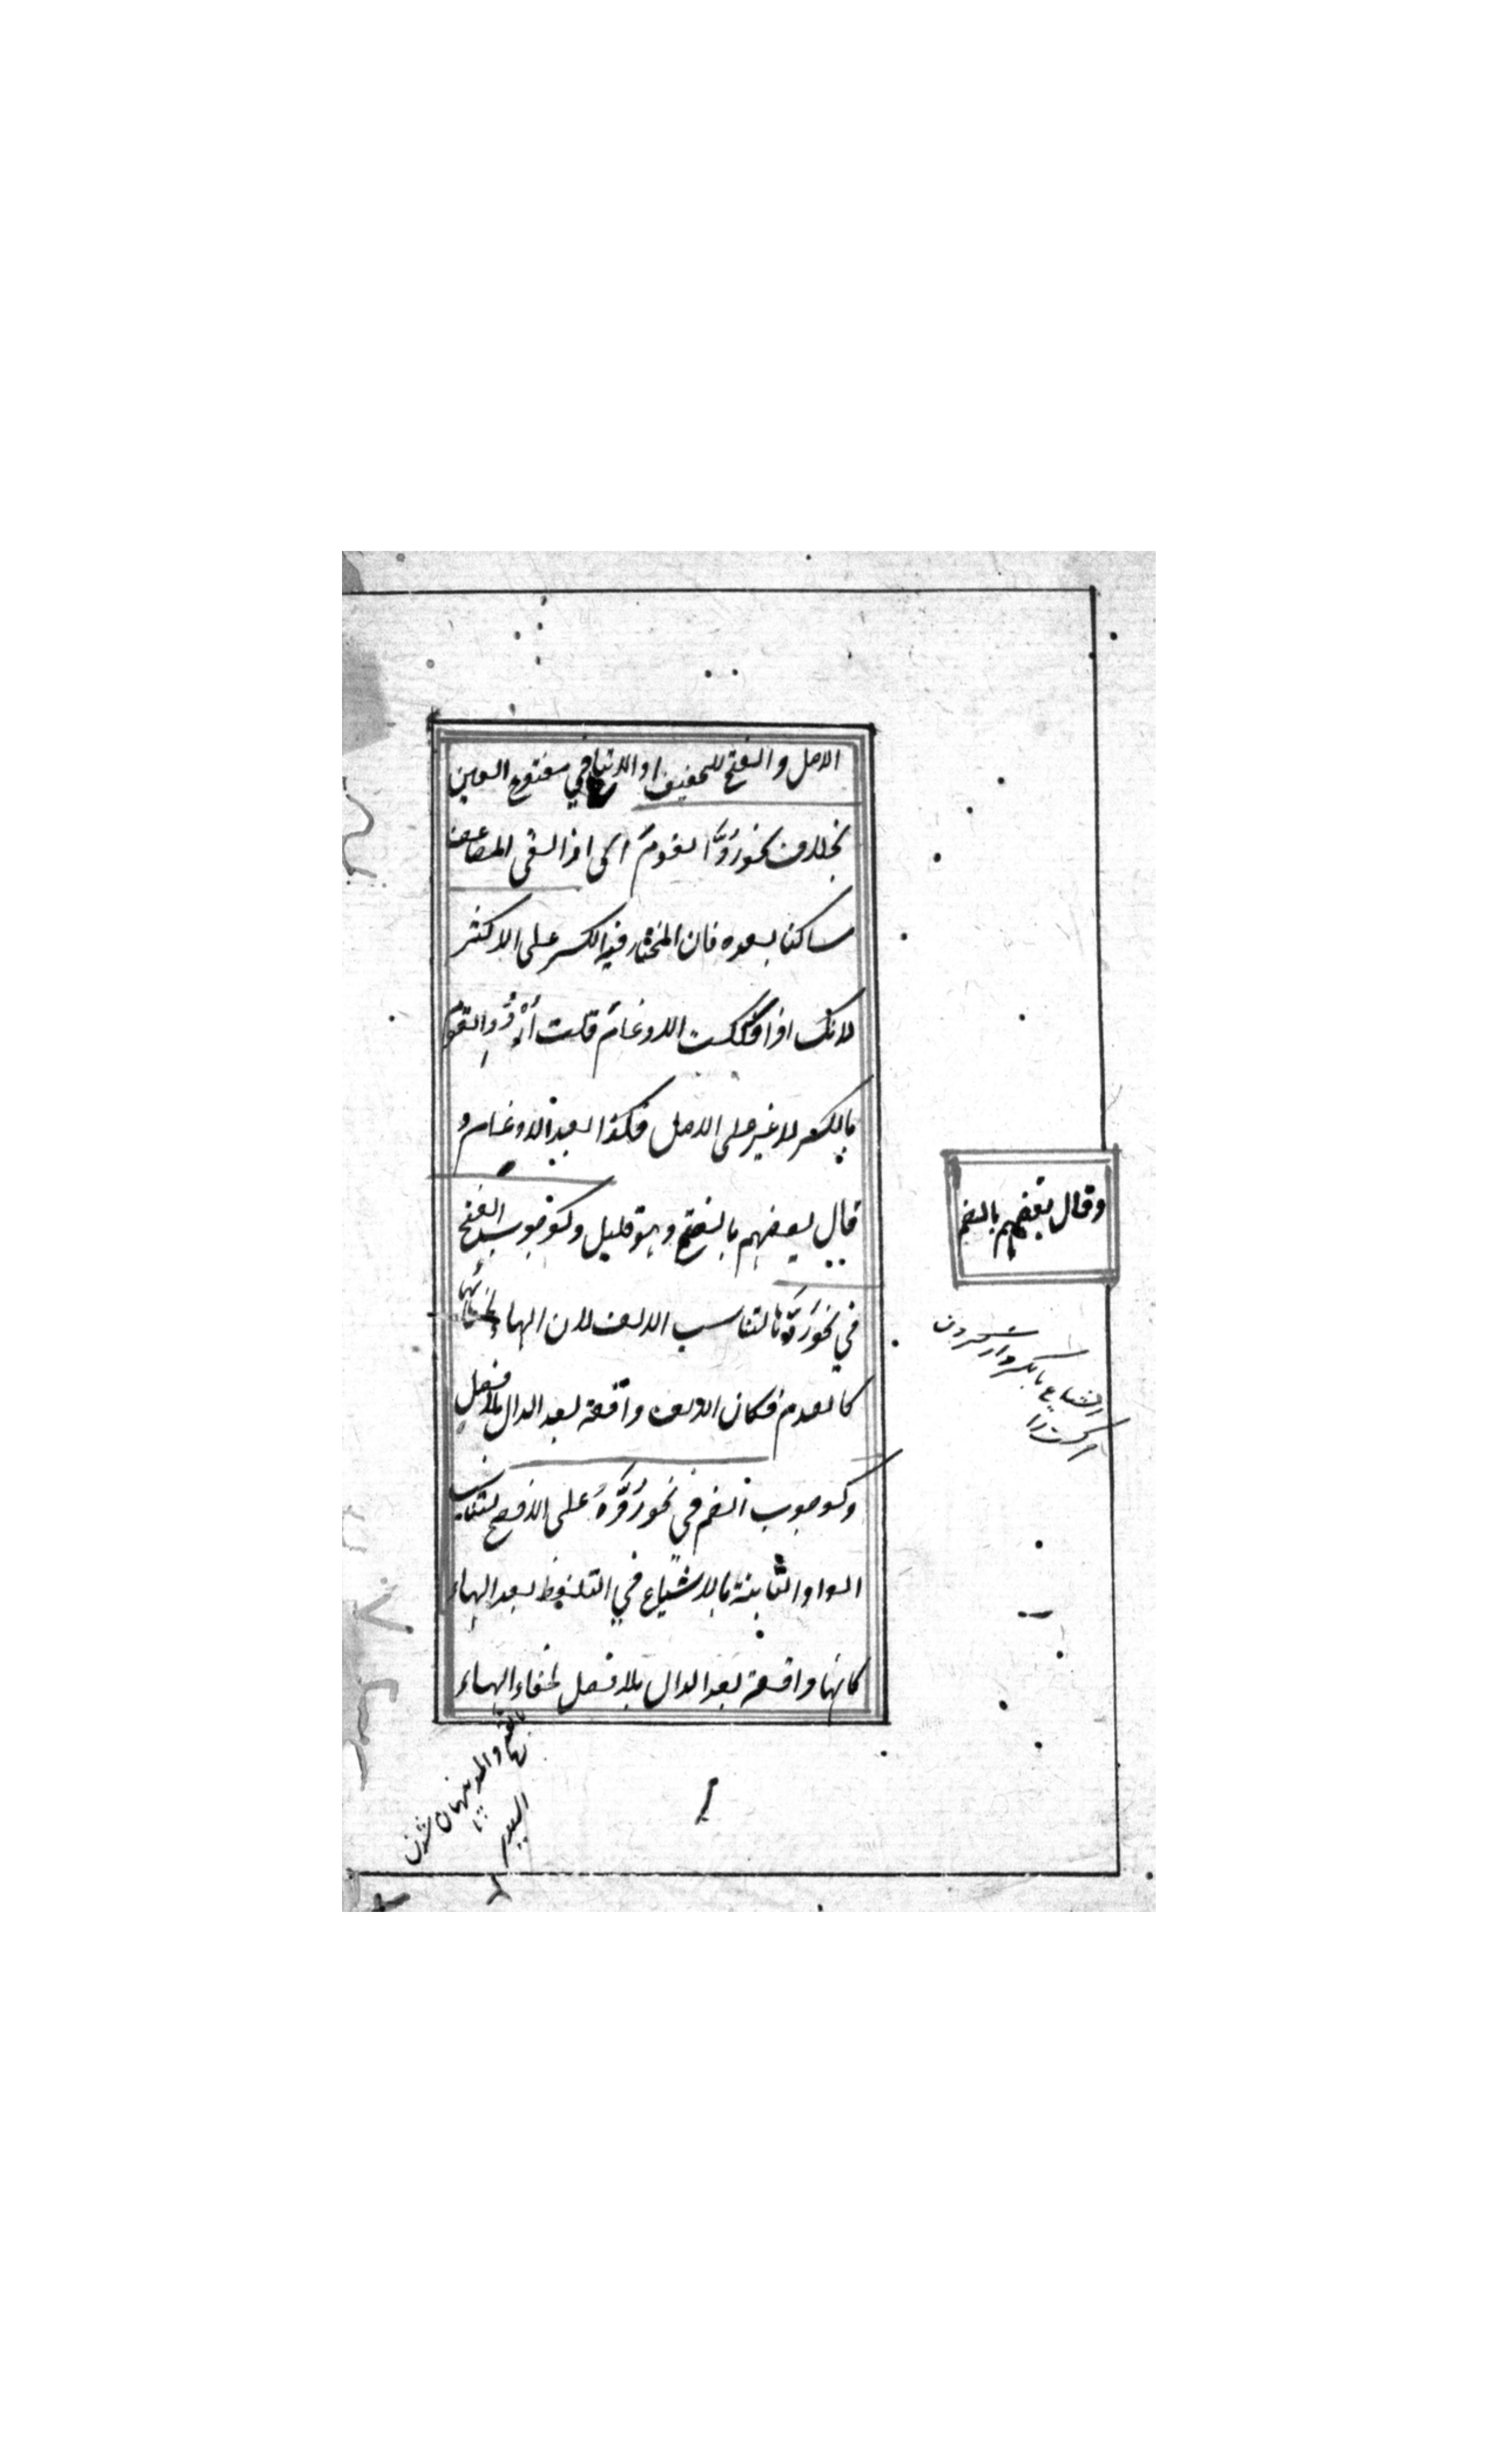 الاصل والفتح للتخفيف او الاتباع في مفتوح العين
بخلاف نحو رُدَّ القومَ اى اذا لقى المضاعف
ساكنا بعده فان المختار فيه الكسر على الاكثر
لانك اذا فككت الادغام قلت اُرْدُدِ القومَ
بالكسر لا غير على الاصل فكذا بعد الادغام و
قال بعضهم بالفتح وهو قليل وكوجوب الفتح
في نحو رُدَّها لتناسب الالف لان الهاء لخفائها
كالعدم فكان الالف واقعة بعد الدال بلا فصل
وكوجوب الضم في نحو رُدُّهُ على الافصح لتناسب
الواو الثابتة بالاشباع في التلفظ بعد الهاء
كانها واقعة بعد الدال بلا فصل لخفاء الهاء
وقال بعضهم بالضم